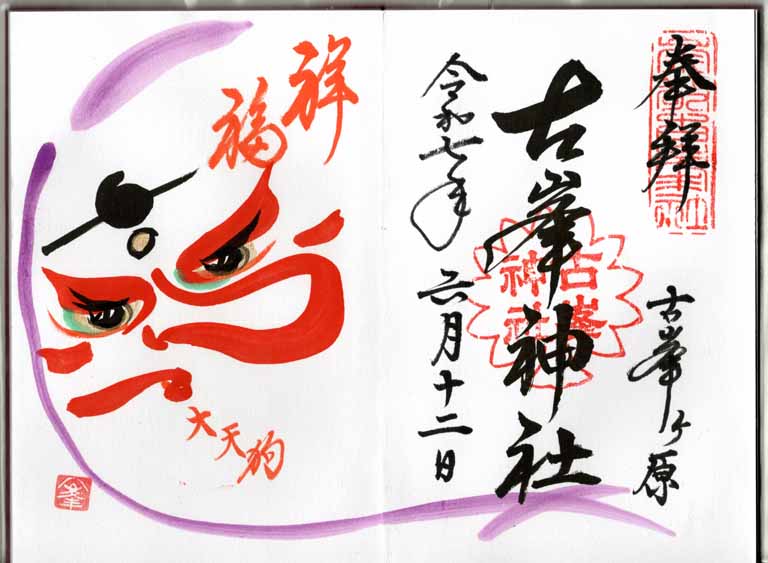 奉拝
古峯ヶ原
古峯神社
古峯神社
令和七年六月十二日
祥福
大天狗
峯